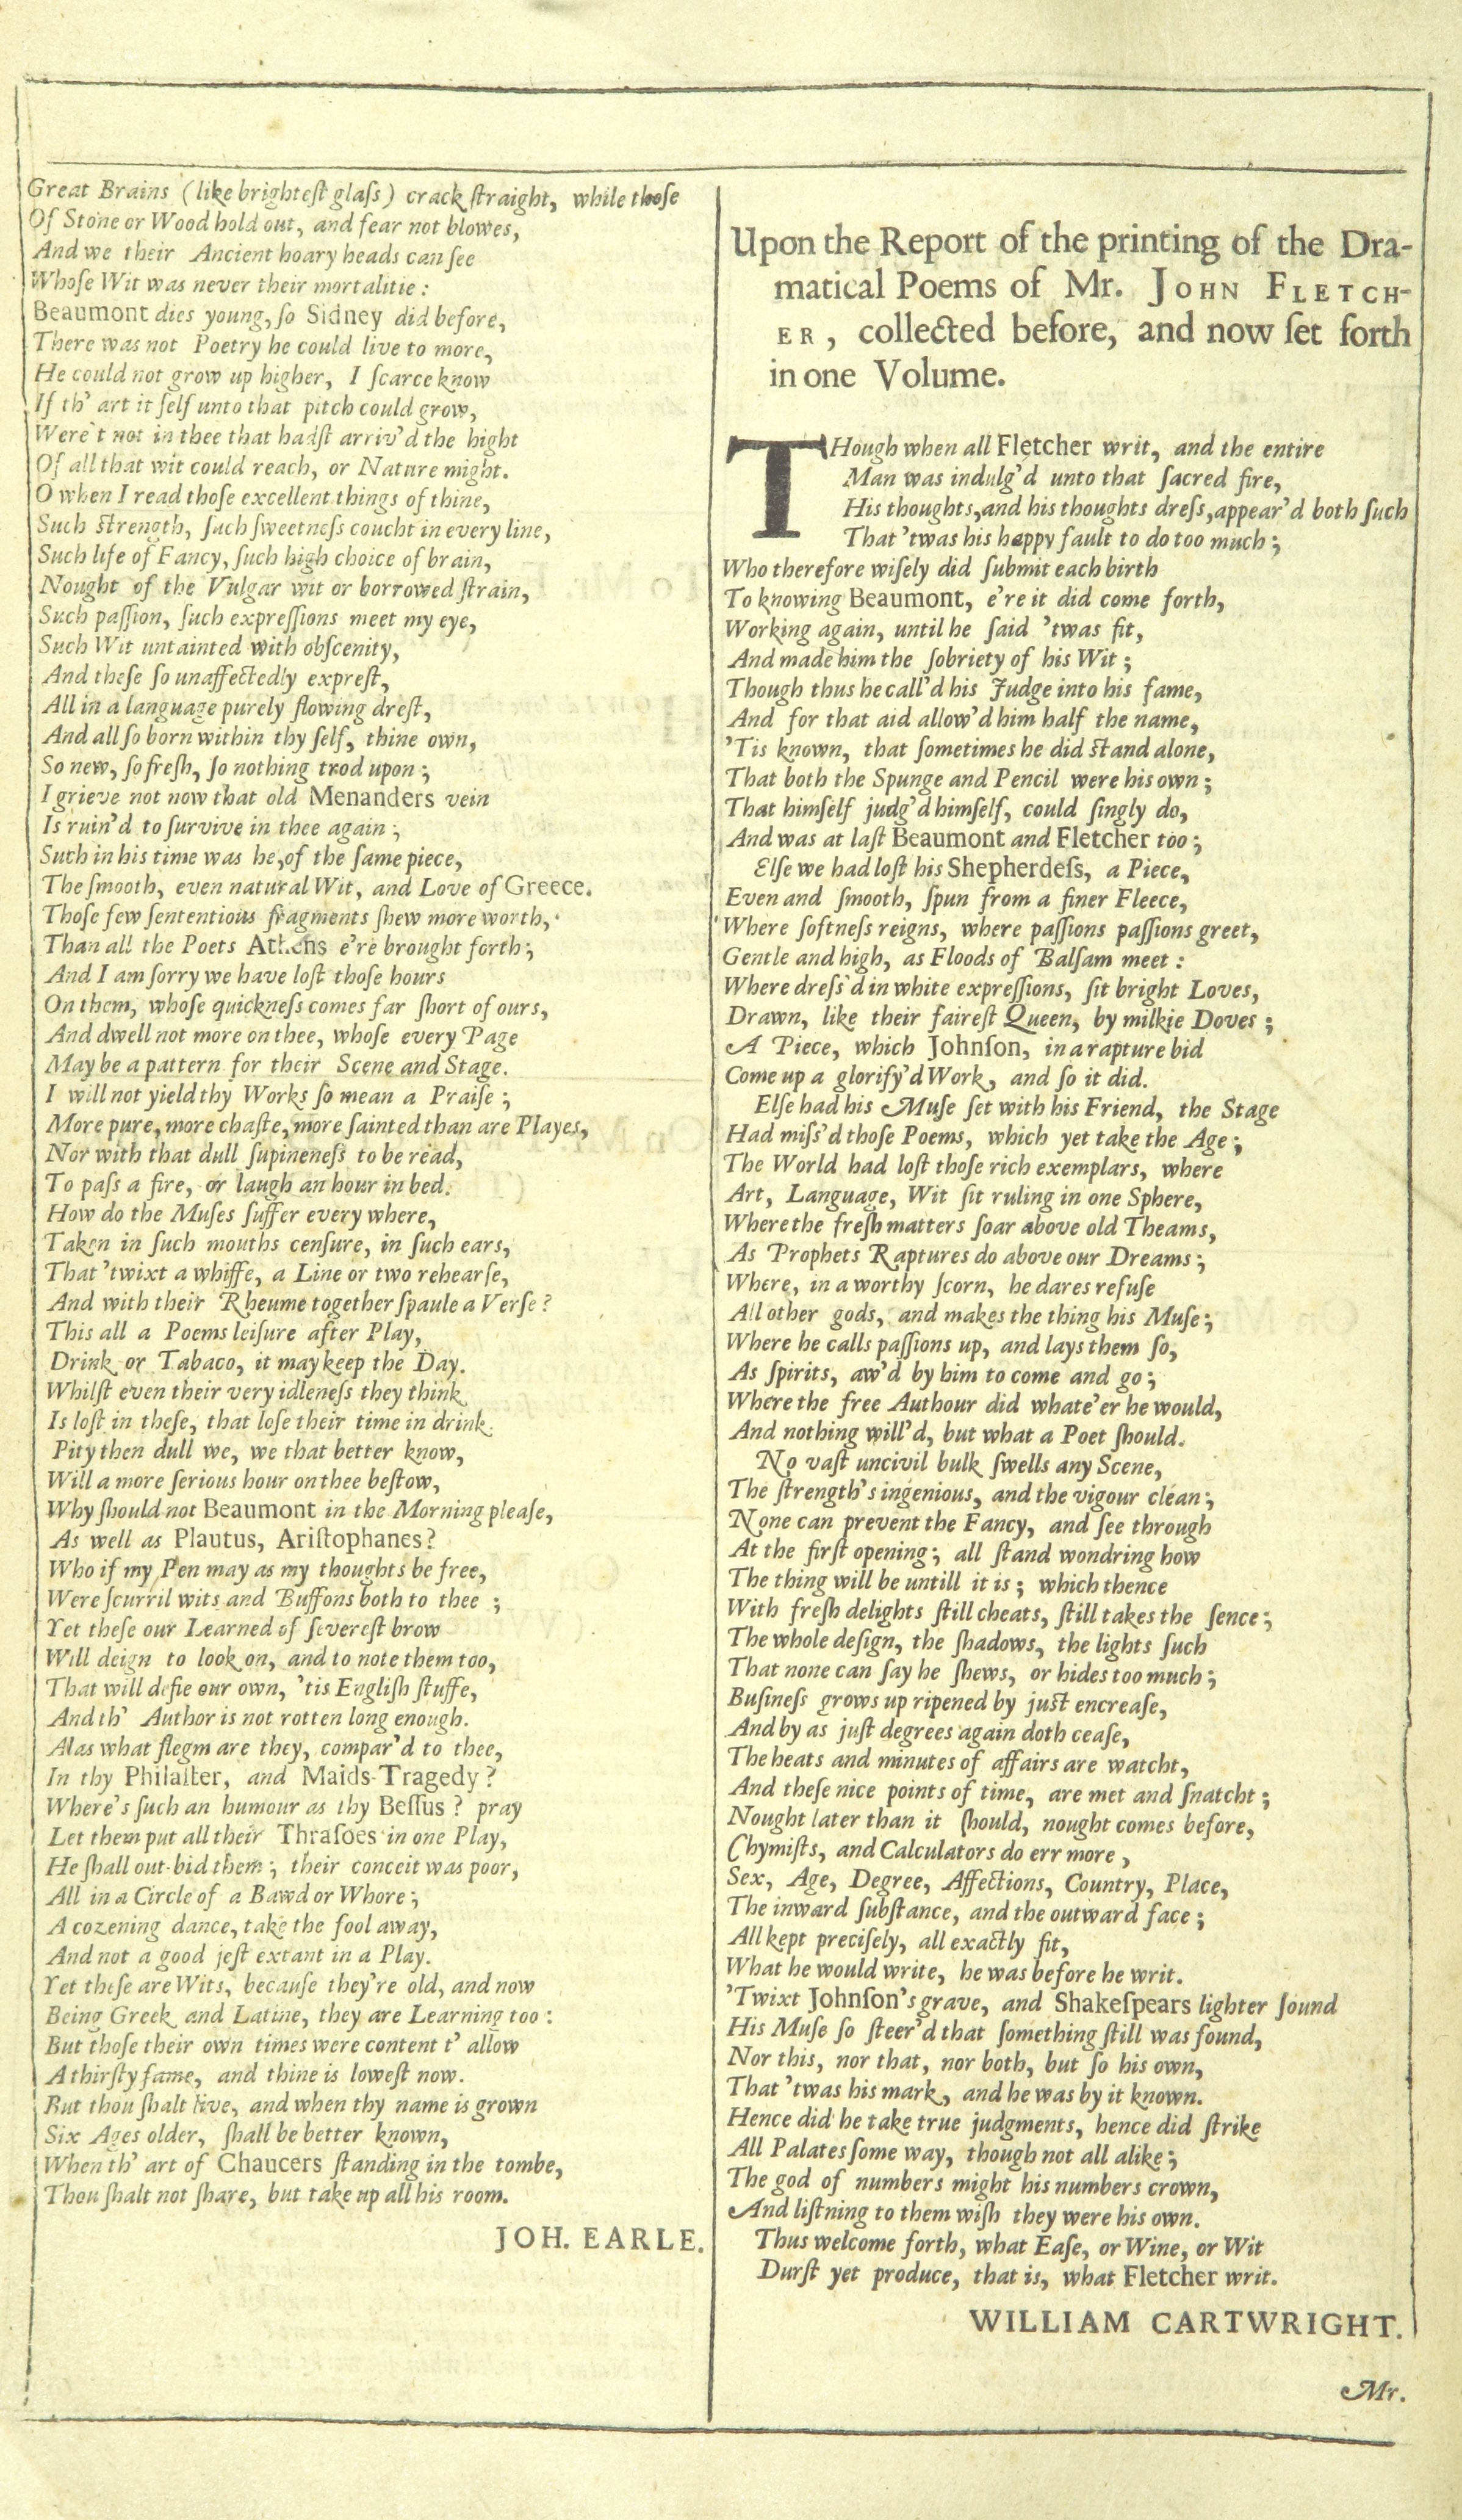 Great Brains (like brightest glaſs) crack ſtraight, while thoſe
Of Stone or Wood hold out, and fear not blowes,
And we their Ancient hoary heads can ſee
Whoſe Wit was never their mortalitie:
Beaumont dies young, ſo Sidney did before,
There was not Poetry he could live to more,
He could not grow up higher, I ſcarce know
If th' art it ſelf unto that pitch could grow,
Were't not in thee that hadſt arriv'd the hight
Of all that wit could reach, or Nature might.
O when I read thoſe excellent things of thine,
Such ſtrength, ſuch ſweetneſs coucht in every line,
Such life of Fancy, ſuch high choice of brain,
Nought of the Vulgar wit or borrowed ſtrain,
Such paſſion, ſuch expreſſions meet my eye,
Such Wit untainted with obſcenity,
And theſe ſo unaffectedly expreſt,
All in a language purely flowing dreſt,
And all ſo born within thy ſelf, thine own,
So new, ſo freſh, ſo nothing trod upon;
I grieve not now that old Menanders vein
Is ruin'd to ſurvive in thee again;
Such in his time was he, of the ſame piece,
The ſmooth, even natural Wit, and Love of Greece.
Thoſe few ſententious fragments ſhew more worth,
Than all the Poets Athens e're brought forth;
And I am ſorry we have loſt thoſe hours
On them, whoſe quickneſs comes far ſhort of ours,
And dwell not more on thee, whoſe every Page
May be a pattern for their Scene and Stage.
I will not yield thy Works ſo mean a Praiſe;
More pure, more chaſte, more ſainted than are Playes,
Nor with that dull ſupineneſs to be read,
To paſs a fire, or laugh an hour in bed.
How do the Muſes ſuffer every where,
Taken in ſuch mouths cenſure, in ſuch ears,
That 'twixt a whiffe, a Line or two rehearſe,
And with their Rheume together ſpaule a Verſe?
This all a Poems leiſure after Play,
Drink or Tabaco, it may keep the Day.
Whilſt even their very idleneſs they think
Is loſt in theſe, that loſe their time in drink.
Pity then dull we, we that better know,
Will a more ſerious hour on thee beſtow,
Why ſhould not Beaumont in the Morning pleaſe,
As well as Plautus, Ariſtophanes?
Who if my Pen may as my thoughts be free,
Were ſcurril wits and Buffons both to thee;
Yet theſe our Learned of ſevereſt brow
Will deign to look on, and to note them too,
That will defie our own, 'tis Engliſh ſtuffe,
And th' Author is not rotten long enough.
Alas what flegm are they, compar'd to thee,
In thy Philaſter, and Maids-Tragedy?
Where's ſuch an humour as thy Beſſus? pray
Let them put all their Thraſoes in one Play,
He ſhall out-bid them; their conceit was poor,
All in a Circle of a Bawd or Whore;
A cozening dance, take the fool away,
And not a good jeſt extant in a Play.
Yet theſe are Wits, becauſe they're old, and now
Being Greek and Latine, they are Learning too:
But thoſe their own times were content t' allow
A thirſty fame, and thine is loweſt now.
But thou ſhalt live, and when thy name is grown
Six Ages older, ſhall be better known,
When th' art of Chaucers ſtanding in the tombe,
Thou ſhalt not ſhare, but take up all his room.
JOH. EARLE.
Upon the Report of the printing of the Dra-
matical Poems of Mr. JOHN FLETCH-
ER, collected before, and now ſet forth
in one Volume.
THough when all Fletcher writ, and the entire
Man was indulg'd unto that ſacred fire,
His thoughts, and his thoughts dreſs, appear'd both ſuch
That 'twas his happy fault to do too much;
Who therefore wiſely did ſubmit each birth
To knowing Beaumont, e're it did come forth,
Working again, until he ſaid 'twas fit,
And made him the ſobriety of his Wit;
Though thus he call'd his Judge into his fame,
And for that aid allow'd him half the name,
'Tis known, that ſometimes he did ſtand alone,
That both the Spunge and Pencil were his own;
That himſelf judg'd himſelf, could ſingly do,
And was at laſt Beaumont and Fletcher too;
Elſe we had loſt his Shepherdeſs, a Piece,
Even and ſmooth, ſpun from a finer Fleece,
Where ſoftneſs reigns, where paſſions paſſions greet,
Gentle and high, as Floods of Balſam meet:
Where dreſs'd in white expreſſions, ſit bright Loves,
Drawn, like their faireſt Queen, by milkie Doves;
A Piece, which Johnſon, in a rapture bid
Come up a glorify'd Work, and ſo it did.
Elſe had his Muſe ſet with his Friend, the Stage
Had miſs'd thoſe Poems, which yet take the Age;
The World had loſt thoſe rich exemplars, where
Art, Language, Wit ſit ruling in one Sphere,
Where the freſh matters ſoar above old Theams,
As Prophets Raptures do above our Dreams;
Where, in a worthy ſcorn, he dares refuſe
All other gods, and makes the thing his Muſe;
Where he calls paſſions up, and lays them ſo,
As ſpirits, aw'd by him to come and go;
Where the free Authour did whate'er he would,
And nothing will'd, but what a Poet ſhould.
No vaſt uncivil bulk ſwells any Scene,
The ſtrength's ingenious, and the vigour clean;
None can prevent the Fancy, and ſee through
At the firſt opening; all ſtand wondring how
The thing will be untill it is; which thence
With freſh delights ſtill cheats, ſtill takes the ſence;
The whole deſign, the ſhadows, the lights ſuch
That none can ſay he ſhews, or hides too much;
Buſineſs grows up ripened by juſt encreaſe,
And by as juſt degrees again doth ceaſe,
The heats and minutes of affairs are watcht,
And theſe nice points of time, are met and ſnatcht;
Nought later than it ſhould, nought comes before,
Chymiſts, and Calculators do err more,
Sex, Age, Degree, Affections, Country, Place,
The inward ſubſtance, and the outward face;
All kept preciſely, all exactly fit,
What he would write, he was before he writ.
'Twixt Johnſon's grave, and Shakeſpears lighter ſound
His Muſe ſo ſteer'd that ſomething ſtill was found,
Nor this, nor that, nor both, but ſo his own,
That 'twas his mark, and he was by it known.
Hence did he take true judgments, hence did ſtrike
All Palates ſome way, though not all alike;
The god of numbers might his numbers crown,
And liſtning to them wiſh they were his own.
Thus welcome forth, what Eaſe, or Wine, or Wit
Durſt yet produce, that is, what Fletcher writ.
WILLIAM CARTWRIGHT.
Mr.